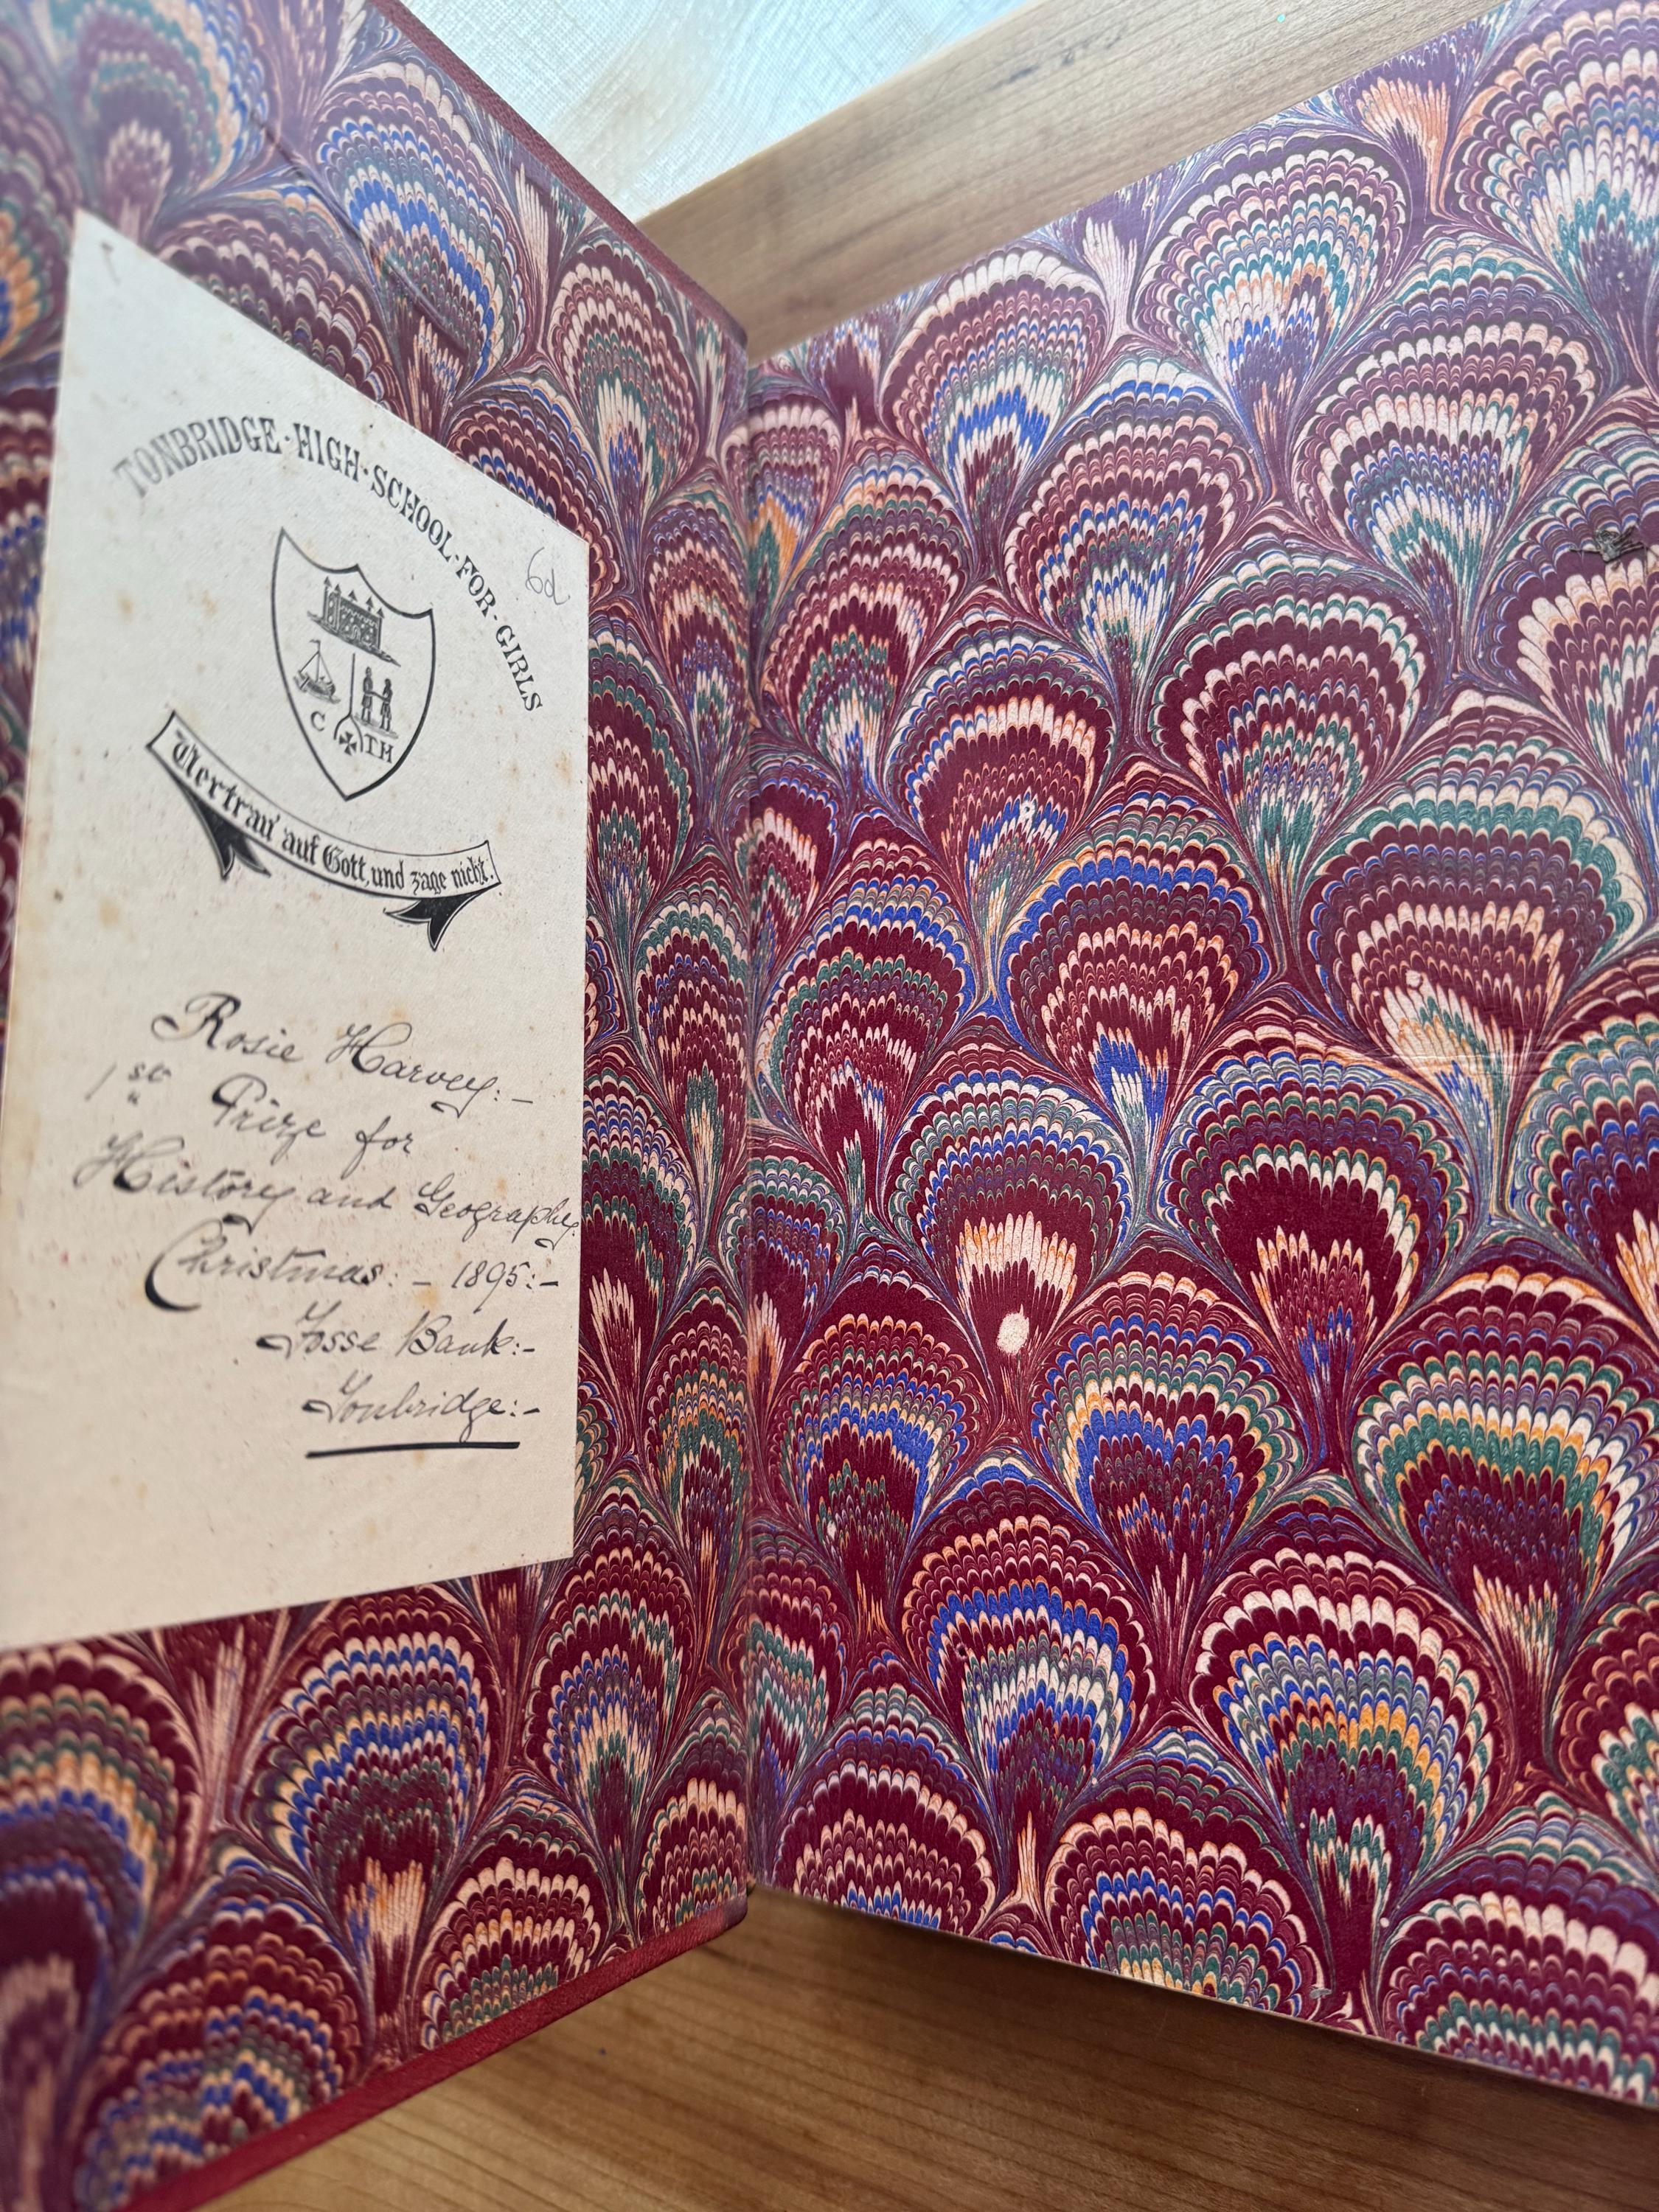 TONBRIDGE·HIGH·SCHOOL·FOR·GIRLS
6d
C TH
Vertrau' auf Gott, und zage nicht.
Rosie Harvey:-
1st Prize for
History and Geography
Christmas:- 1895:-
Fosse Bank:-
Tonbridge:-